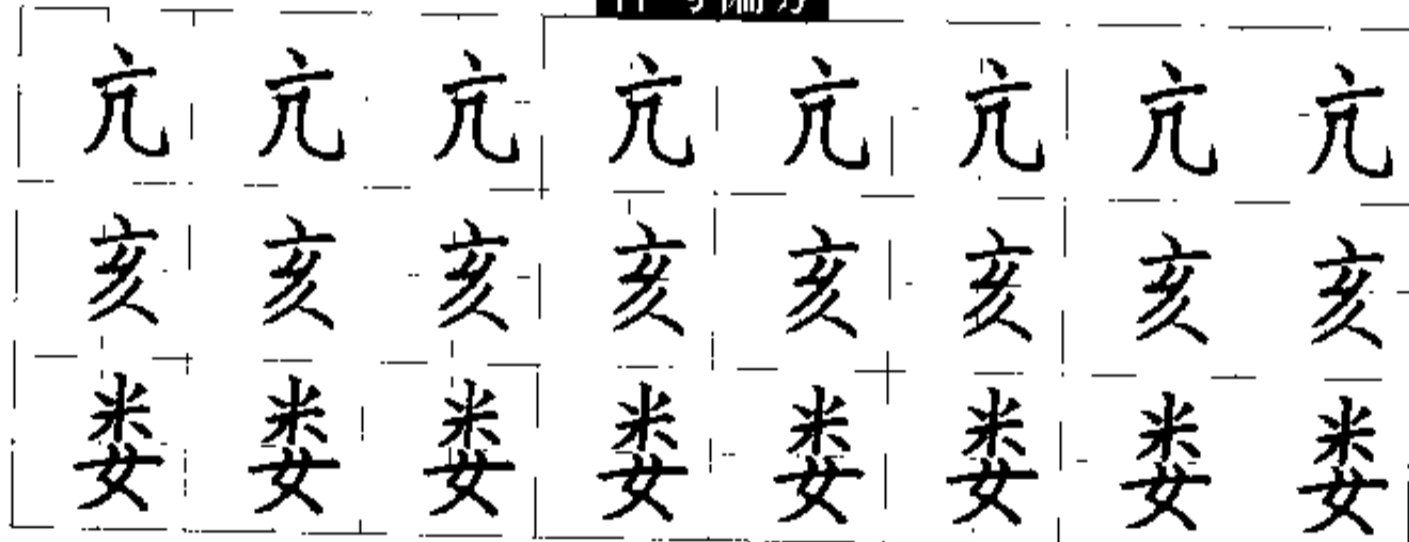 亢亢亢亢亢亢亢亢
亥亥亥亥亥亥亥亥
娄娄娄娄娄娄娄娄